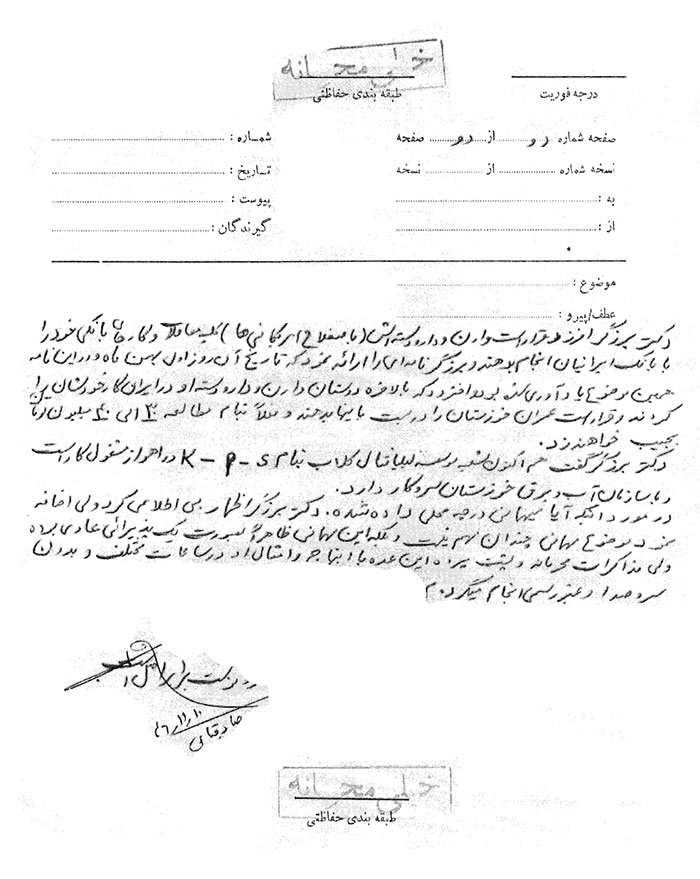 خیلی محرمانه
طبقه بندی حفاظتی
درجه فوریت
صفحه شماره دو از دو صفحه
شماره :
نسخه شماره از نسخه
تاریخ :
به :
پیوست :
از :
گیرندگان :
موضوع :
عطف/پیرو :
دکتر برزگر افزود قرار است وارن و دارودسته اش (باصطلاح امریکائی ها) کلیه معاملات و کارهای بانکی خود را
با بانک ایرانیان انجام دهند و برزگر نامه ای را ارائه نمود که تاریخ آن روز اول بهمن ماه و در این نامه
همین موضوع یادآوری شده بود و افزود که بالاخره دوستان وارن و دارودسته او در ایران کار خودشان را
کردند و قرار است عمران خوزستان را دربست باینها بدهند و عملاً بنام مطالعه ۳۰ الی ۴۰ میلیون
بجیب خواهند زد.
دکتر برزگر گفت هم اکنون موسسه بنام K - P - S در اهواز مشغول کار است
و با سازمان آب و برق خوزستان سروکار دارد.
در مورد اینکه آیا میهمانی درجه محلی داده شده. دکتر برزگر اظهار بی اطلاعی کرد ولی اضافه
نمود موضوع مهمانی چندان مهم نیست و بلکه این مهمانی ظاهراً بصورت یک پذیرائی عادی بوده
ولی مذاکرات محرمانه و پشت پرده این عده با ابتهاج و امثال او در ساعات مختلف و بدون
سروصدا و غیر رسمی انجام میگردد.
۴۶/۱۱/۱۰
خیلی محرمانه
طبقه بندی حفاظتی